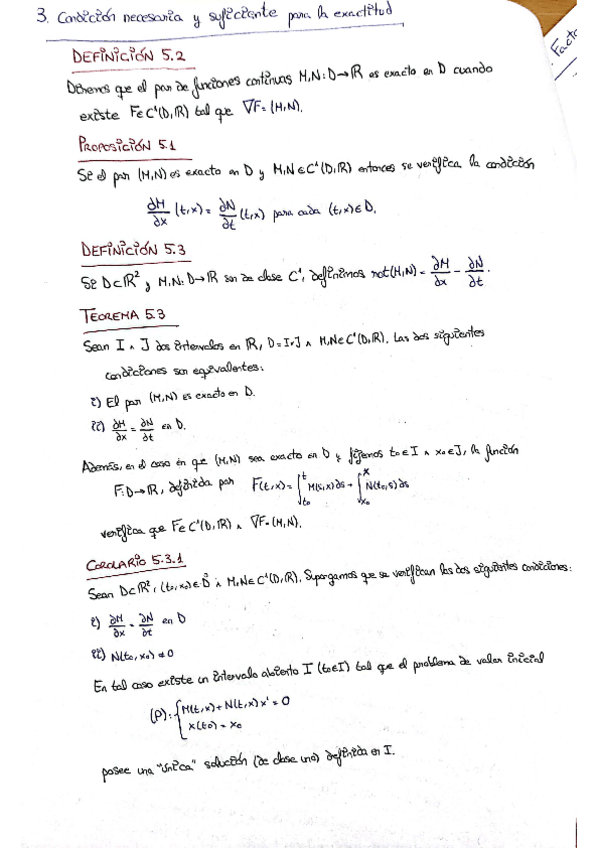 3. Condición necesaria y suficiente para la exactitud
Facto
DEFINICIÓN 5.2
Diremos que el par de funciones continuas M,N: D→ℝ es exacto en D cuando
existe F∈C¹(D,ℝ) tal que ∇F=(M,N).
PROPOSICIÓN 5.1
Si el par (M,N) es exacto en D y M,N∈C¹(D,ℝ) entonces se verifica la condición
∂M/∂x (t,x) = ∂N/∂t (t,x) para cada (t,x)∈D.
DEFINICIÓN 5.3
Si D⊂ℝ² y M,N: D→ℝ son de clase C¹, definimos rot(M,N) = ∂M/∂x - ∂N/∂t.
TEOREMA 5.3
Sean I ∧ J dos intervalos en ℝ, D=I×J ∧ M,N∈C¹(D,ℝ). Las dos siguientes
condiciones son equivalentes:
i) El par (M,N) es exacto en D.
ii) ∂M/∂x = ∂N/∂t en D.
Además, en el caso en que (M,N) sea exacto en D y fijemos t₀∈I ∧ x₀∈J, la función
F:D→ℝ, definida por F(t,x) = ∫_{t₀}^{t} M(s,x)ds + ∫_{x₀}^{x} N(t₀,s)ds
verifica que F∈C¹(D,ℝ) ∧ ∇F=(M,N).
COROLARIO 5.3.1
Sean D⊂ℝ², (t₀,x₀)∈D̊ ∧ M,N∈C¹(D,ℝ). Supongamos que se verifican las dos siguientes condiciones:
i) ∂M/∂x = ∂N/∂t en D
ii) N(t₀,x₀) ≠ 0
En tal caso existe un intervalo abierto I (t₀∈I) tal que el problema de valor inicial
(P): { M(t,x) + N(t,x) x' = 0
x(t₀) = x₀
posee una "única" solución (de clase uno) definida en I.